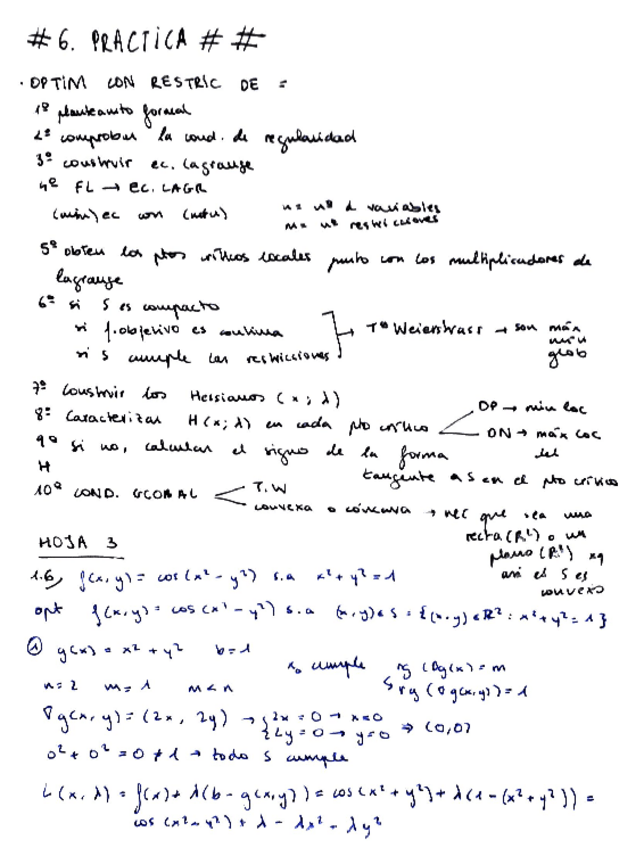 #6. PRACTICA ##
· OPTIM CON RESTRIC DE =
1º planteamto formal
2º comprobar la cond. de regularidad
3º construir ec. Lagrange
4º FL → ec. LAGR
(m+n) ec con (n+m)   n = nº d variables
m = nº restricciones
5º obten los ptos críticos locales junto con los multiplicadores de
lagrange
6º si S es compacto
si f.objetivo es continua → Tª Weierstrass → son máx
si S cumple las restricciones   min
glob
7º Construir los Hessianos (x; λ)
8º Caracterizar H(x; λ) en cada pto crítico   DP → min loc
DN → máx loc
9º si no, calcular el signo de la forma
H   tangente a S en el pto crítico
10º COND. GLOBAL   T.W
convexa o cóncava → nec que sea una
recta (R²) o un
plano (R³) xq
así el S es
convexo
HOJA 3
1.6) f(x,y) = cos(x² - y²) s.a x² + y² = 1
opt f(x,y) = cos(x² - y²) s.a (x,y) ∈ S = {(x,y) ∈ R² : x² + y² = 1}
① g(x) = x² + y²   b = 1
x₀ cumple   rg (∇g(x)) = m
n = 2   m = 1   m < n   ↳ rg (∇g(x,y)) = 1
∇g(x,y) = (2x, 2y) → { 2x = 0 → x = 0
{ 2y = 0 → y = 0 ⇒ (0,0)
0² + 0² = 0 ≠ 1 → todo S cumple
L(x, λ) = f(x) + λ(b - g(x,y)) = cos(x² + y²) + λ(1 - (x² + y²)) =
cos(x² - y²) + λ - λx² - λy²